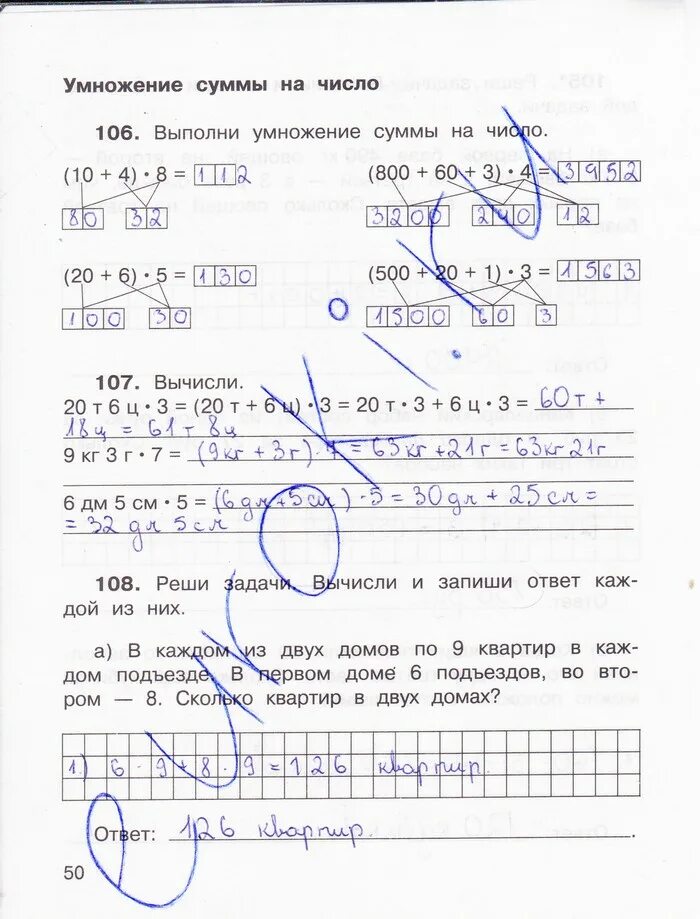 Умножение суммы на число
106. Выполни умножение суммы на число.
(10 + 4) · 8 = 112
(800 + 60 + 3) · 4 = 3952
80 32
3200 240 12
(20 + 6) · 5 = 130
(500 + 20 + 1) · 3 = 1563
100 30
1500 60 3
107. Вычисли.
20 т 6 ц · 3 = (20 т + 6 ц) · 3 = 20 т · 3 + 6 ц · 3 = 60т +
18ц = 61т 8ц
9 кг 3 г · 7 = (9кг + 3г) · 7 = 63кг + 21г = 63кг 21г
6 дм 5 см · 5 = (6дм + 5см) · 5 = 30дм + 25см =
= 32 дм 5см
108. Реши задачи. Вычисли и запиши ответ каж-
дой из них.
а) В каждом из двух домов по 9 квартир в каж-
дом подъезде. В первом доме 6 подъездов, во вто-
ром — 8. Сколько квартир в двух домах?
1.) 6 · 9 + 8 · 9 = 126 квартир.
Ответ: 126 квартир.
50